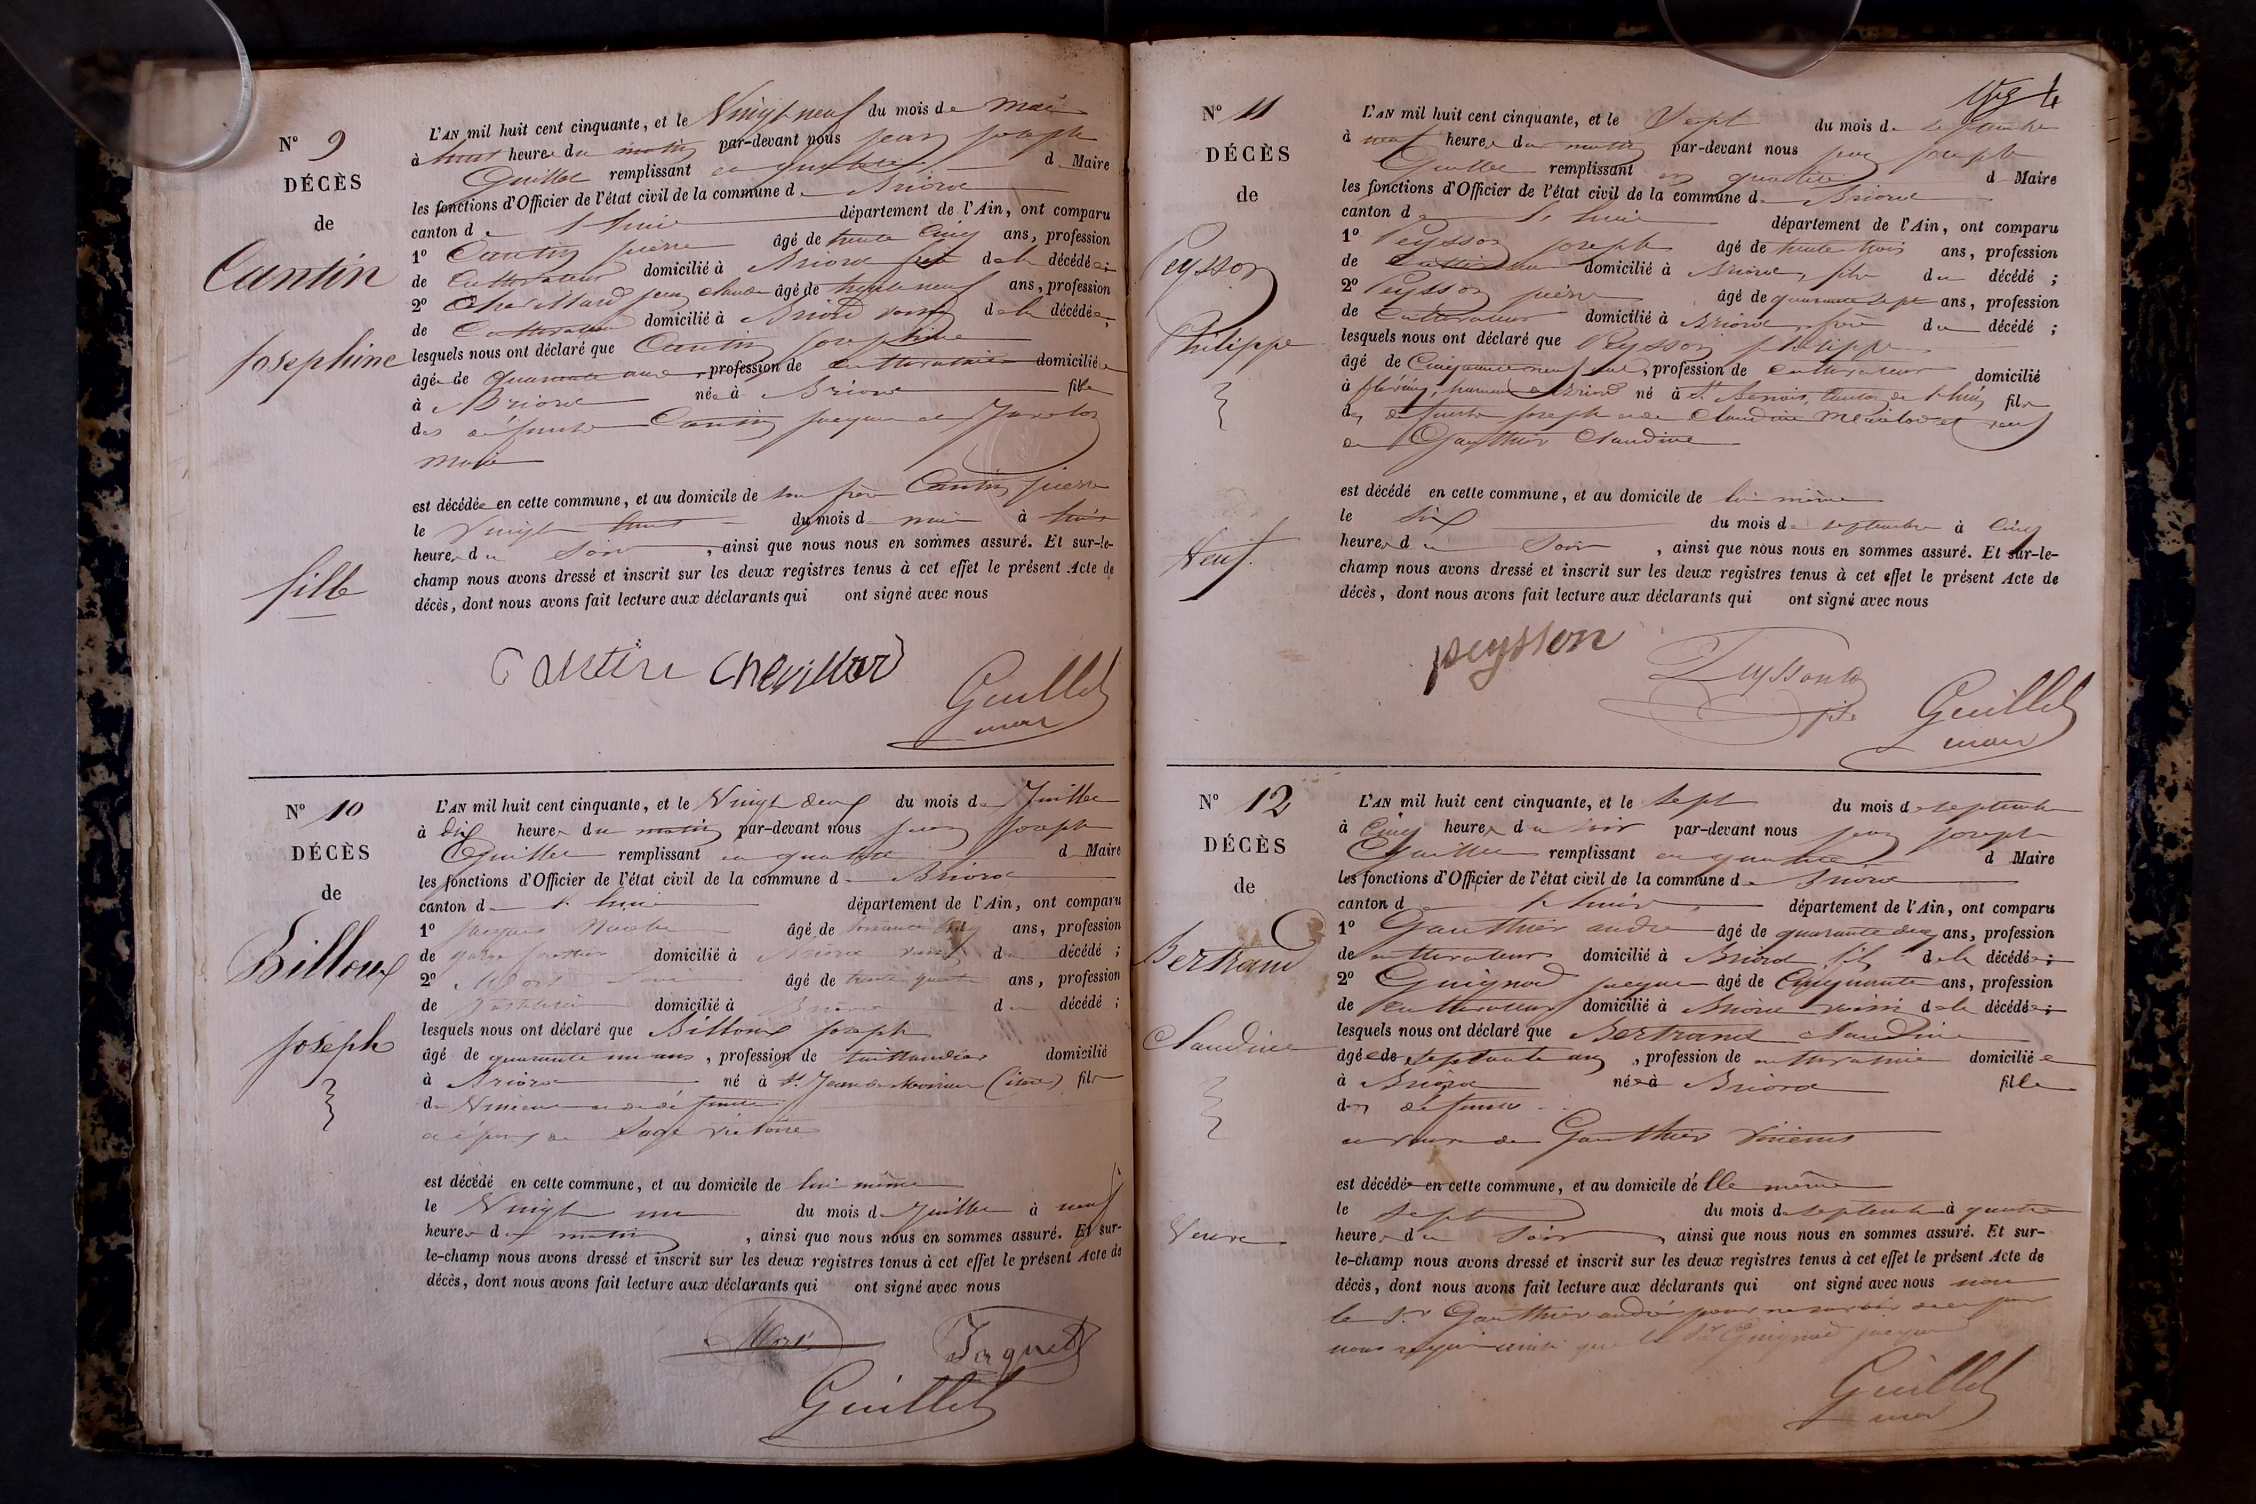 N° 9
DÉCÈS
de
Cantin
Josephine
fille
L'AN mil huit cent cinquante, et le Vingt neuf du mois de mai
à huit heures du matin par-devant nous jean joseph
Guillet remplissant en qualité d Maire
les fonctions d'Officier de l'état civil de la commune de Briord
canton d département de l'Ain, ont comparu
1° Cantin pierre âgé de trente cinq ans, profession
de Cultivateur domicilié à Briord de la décédée;
2° jean claude âgé de trente neuf ans, profession
de Cultivateur domicilié à Briord voisin de la décédée;
lesquels nous ont déclaré que Cantin josephine
âgée de quarante ans, profession de cultivatrice domiciliée
à Briord née à Briord fille
des défunts Cantin jacques et de
Marie
est décédée en cette commune, et au domicile de son frère Cantin pierre
le Vingt huit du mois de mai à
heures du Soir, ainsi que nous nous en sommes assuré. Et sur-le-
champ nous avons dressé et inscrit sur les deux registres tenus à cet effet le présent Acte de
décès, dont nous avons fait lecture aux déclarants qui ont signé avec nous
Cantin Chevillard
Guillet
maire
N° 10
DÉCÈS
de
Billoux
joseph
L'AN mil huit cent cinquante, et le Vingt deux du mois de Juillet
à dix heures du matin par-devant nous jean joseph
Guillet remplissant en qualité d Maire
les fonctions d'Officier de l'état civil de la commune de Briord
canton d département de l'Ain, ont comparu
1° âgé de ans, profession
de domicilié à Briord voisin du décédé;
2° âgé de trente quatre ans, profession
de domicilié à Briord du décédé;
lesquels nous ont déclaré que Billoux joseph
âgé de quarante un ans, profession de taillandier domicilié
à Briord né à St Jean de (isère) fils
de et de défunte
et époux de Sage victoire
est décédé en cette commune, et au domicile de lui même
le Vingt un du mois de Juillet à neuf
heures du matin, ainsi que nous nous en sommes assuré. Et sur-
le-champ nous avons dressé et inscrit sur les deux registres tenus à cet effet le présent Acte de
décès, dont nous avons fait lecture aux déclarants qui ont signé avec nous
Jaquet
Guillet
N° 11
DÉCÈS
de
Peysson
Philippe
Veuf.
L'AN mil huit cent cinquante, et le Sept du mois de septembre
à neuf heures du matin par-devant nous jean joseph
Guillet remplissant en qualité d Maire
les fonctions d'Officier de l'état civil de la commune de Briord
canton d département de l'Ain, ont comparu
1° Peysson joseph âgé de trente trois ans, profession
de Cultivateur domicilié à Briord, fils du décédé;
2° Peysson pierre âgé de quarante sept ans, profession
de Cultivateur domicilié à Briord, frère du décédé;
lesquels nous ont déclaré que Peysson philippe
âgé de Cinquante neuf ans, profession de cultivateur domicilié
à hameau de Briord né à St Benoit, Canton de fils
des défunts joseph et de Claudine et veuf
de Gauthier Claudine
est décédé en cette commune, et au domicile de lui même
le Six du mois de septembre à Cinq
heures du Soir, ainsi que nous nous en sommes assuré. Et sur-le-
champ nous avons dressé et inscrit sur les deux registres tenus à cet effet le présent Acte de
décès, dont nous avons fait lecture aux déclarants qui ont signé avec nous
peysson
Peysson
fils
Guillet
maire
N° 12
DÉCÈS
de
Bertrand
Claudine
Veuve
L'AN mil huit cent cinquante, et le Sept du mois de septembre
à Cinq heures du soir par-devant nous jean joseph
Guillet remplissant en qualité d Maire
les fonctions d'Officier de l'état civil de la commune de Briord
canton d département de l'Ain, ont comparu
1° Gauthier andré âgé de quarante deux ans, profession
de cultivateur domicilié à Briord fils de la décédée;
2° Guignod jacques âgé de Cinquante ans, profession
de Cultivateur domicilié à Briord voisin de la décédée;
lesquels nous ont déclaré que Bertrand Claudine
âgée de Septante ans, profession de cultivatrice domiciliée
à Briord née à Briord fille
des défunts
et veuve de Gauthier Vincent
est décédée en cette commune, et au domicile d'elle même
le Sept du mois de septembre à quatre
heures du Soir, ainsi que nous nous en sommes assuré. Et sur-
le-champ nous avons dressé et inscrit sur les deux registres tenus à cet effet le présent Acte de
décès, dont nous avons fait lecture aux déclarants qui ont signé avec nous non
le Sr Gauthier andré pour ne savoir de ce par
nous requis ainsi que le Sr Guignod jacques
Guillet
maire